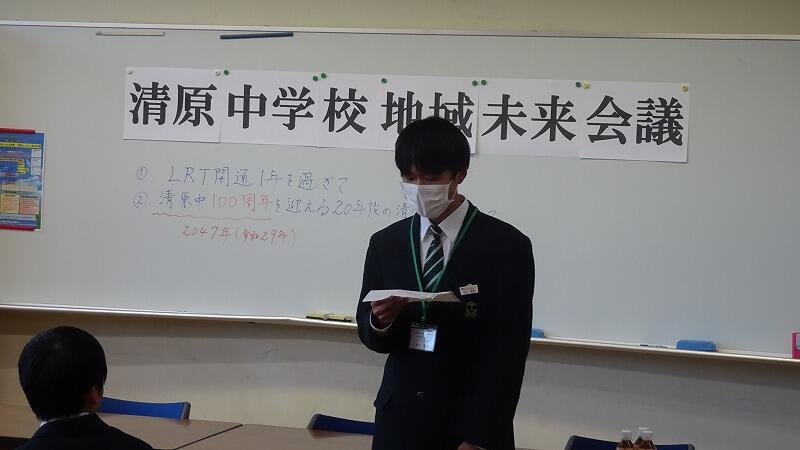 清原中学校 地域未来会議
① LRT開通1年を過ぎて
② 清原中100周年を迎える20年後の清
2047年(令和29年)